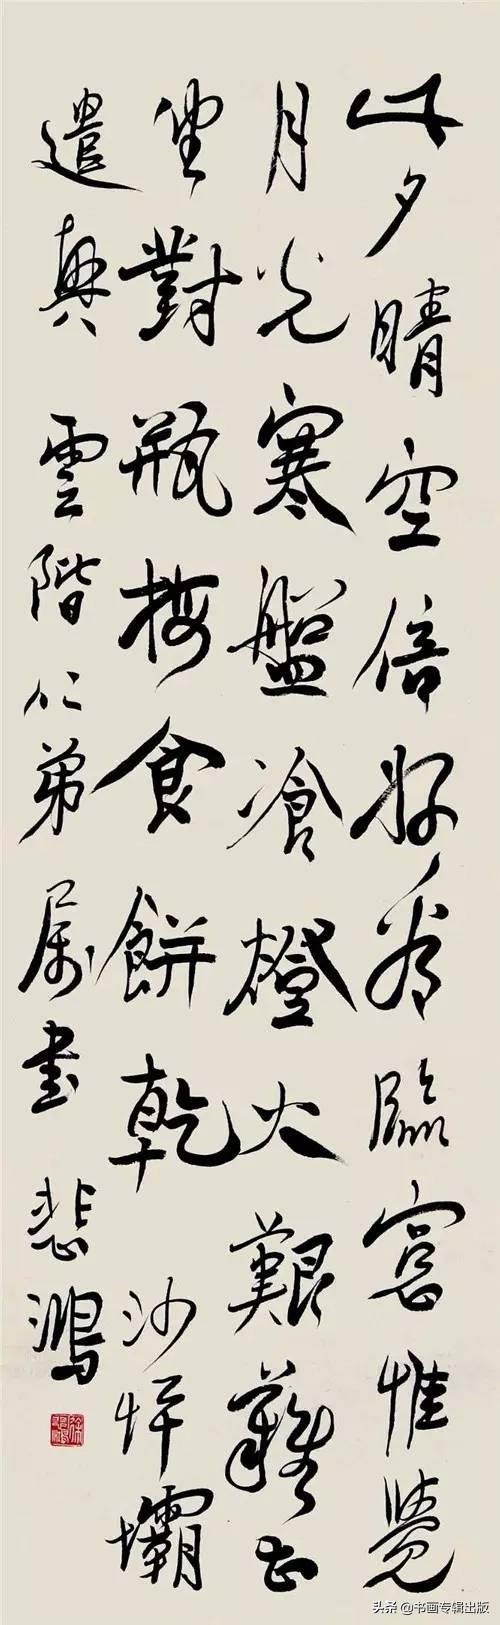 此夕晴空倍好看臨窗惟覺
月光寒盤飡燈火艱難甚
坐對瓶梅食餅乾 沙坪壩
遣興 雲階仁弟屬書 悲鴻
头条 @书画专辑出版